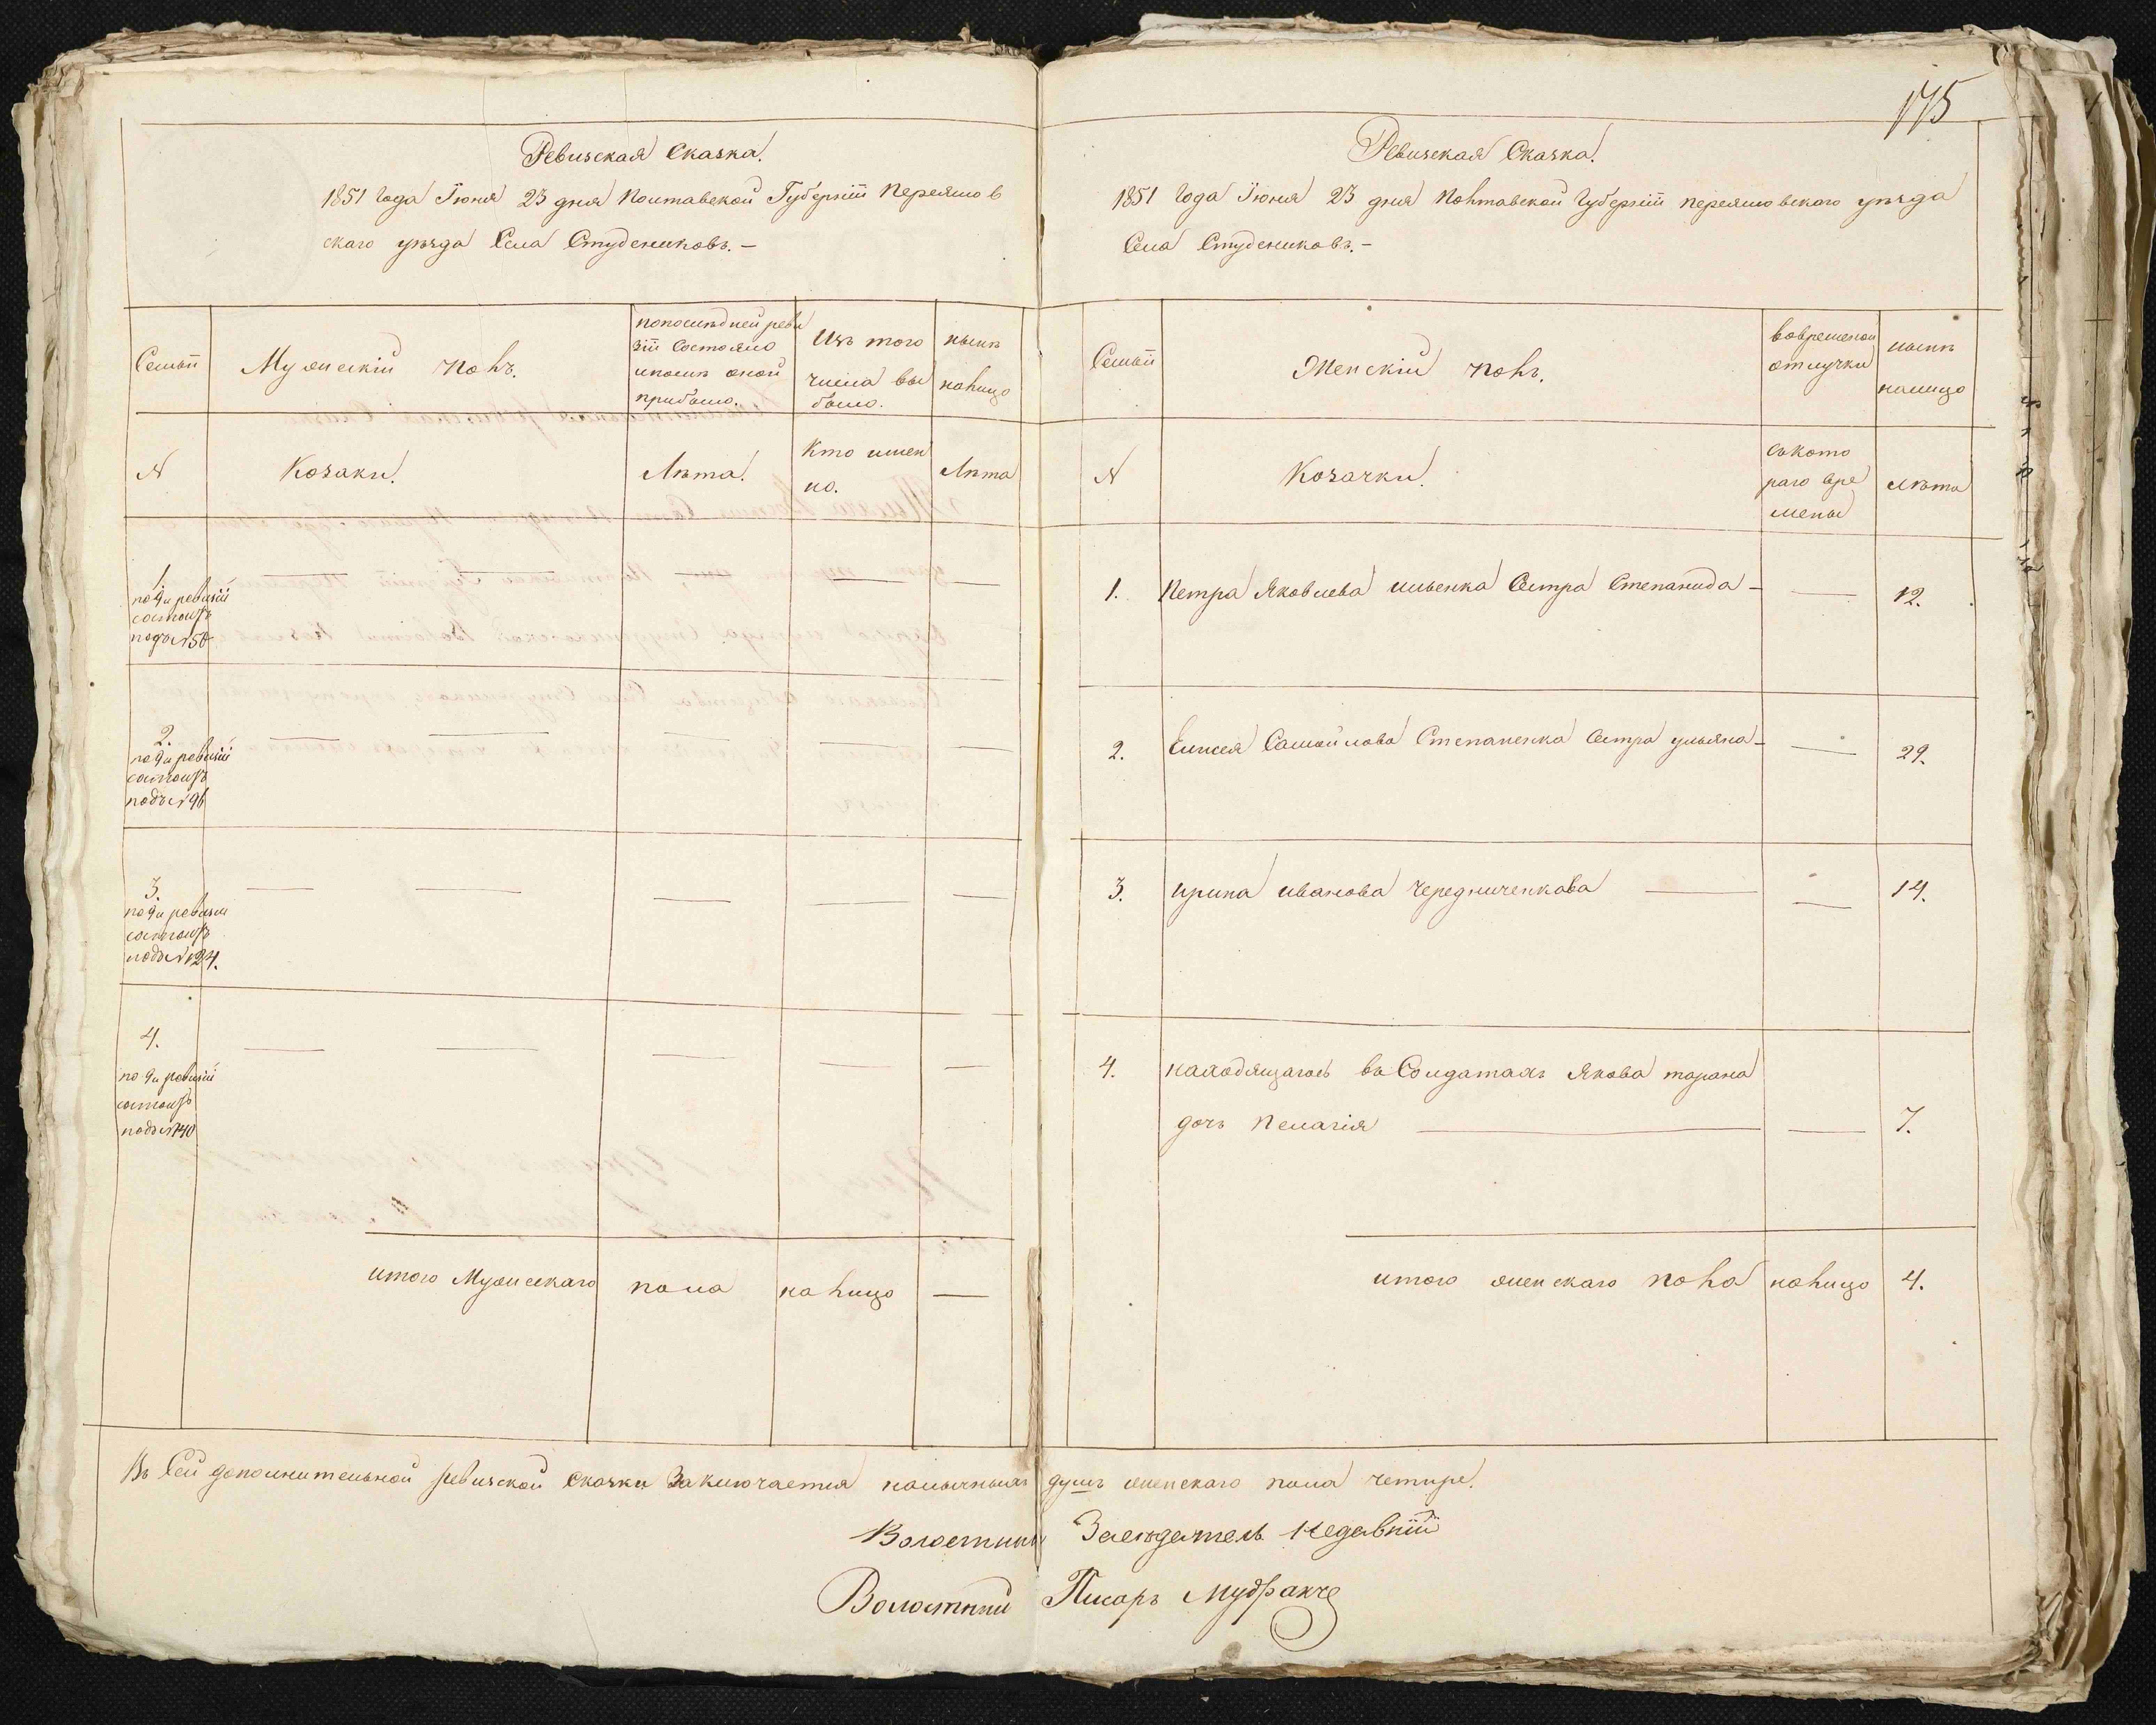 175
Ревизская Сказка.
1851 Года Іюня 23 дня Полтавской Губерніи Переяслов
скаго уѣзда Села Студениковъ. —
Семьи
Мужескій полъ.
попослѣдней реви
зіи Состояло
ипослѣ оной
прибыло.
Изъ того
числа вы
было.
нынѣ
налицо
№
Козаки.
Лѣта.
Кто имен
но.
Лѣта
1.
по 9й ревизіи
состоитъ
подъ №50
2.
по 9й ревизіи
состоитъ
подъ №96
3.
по 9й ревизіи
состоитъ
подъ №124.
4.
по 9й ревизіи
состоитъ
подъ №140
итого Мужескаго пола налицо —
Ревизская Сказка.
1851 Года Іюня 23 дня Полтавской Губерніи переясловского уѣзда
Села Студениковъ. —
Семьи
Женскій полъ.
вовременой
отлучки
нынѣ
налицо
№
Козачки.
съкото
раго вре
мены
Лѣта
1. Петра Яковлева ильенка Сестра Степанида — — 12.
2. Елисея Самойлова Степаненка Сестра ульяна — — 29.
3. ирина иванова Чередниченкова — — 14.
4. находящагось въ Солдатахъ Якова тарана
дочь Пелагія — — 7.
итого женскаго пола налицо 4.
Въ Сей дополнительной ревизской сказки Заключается наличныхъ душъ женскаго пола четире.
Волостный Засѣдатель Недавній
Волостный Писарь Мудраче